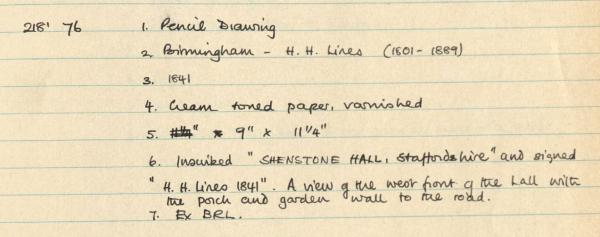 218' 76 1. Pencil Drawing
2. Birmingham - H. H. Lines (1801 - 1889)
3. 1841
4. Cream toned paper, varnished
5. 9" x 11 1/4"
6. Inscribed "SHENSTONE HALL, Staffordshire" and signed
"H. H. Lines 1841". A view of the west front of the hall with
the porch and garden wall to the road.
7. Ex BRL.